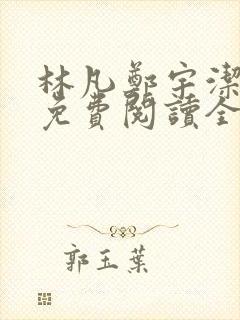 林凡鄭宇潔
免費閱讀全
郭玉葉